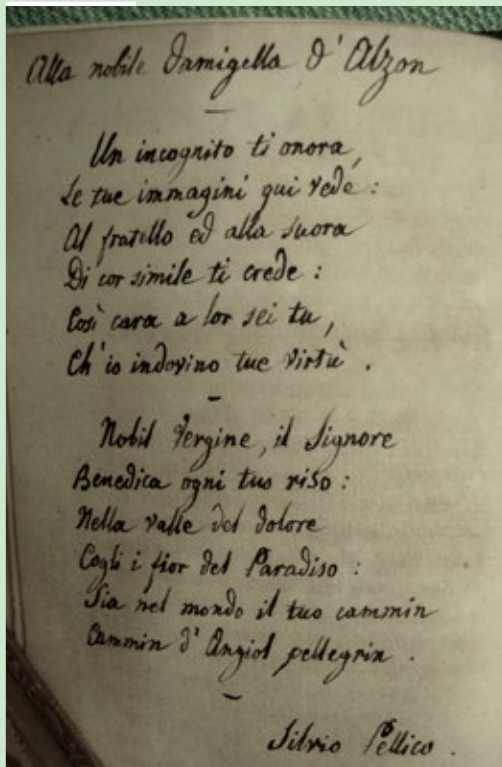 Alla nobile Damigella d'Alzon
Un incognito ti onora,
Le tue immagini qui vede:
Al fratello ed alla suora
Di cor simile ti crede:
Così cara a lor sei tu,
Ch'io indovino tue virtù.
Nobil Vergine, il Signore
Benedica ogni tuo riso:
Nella valle del dolore
Cogli i fior del Paradiso:
Sia nel mondo il tuo cammin
Cammin d'Angiol pellegrin.
Silvio Pellico.